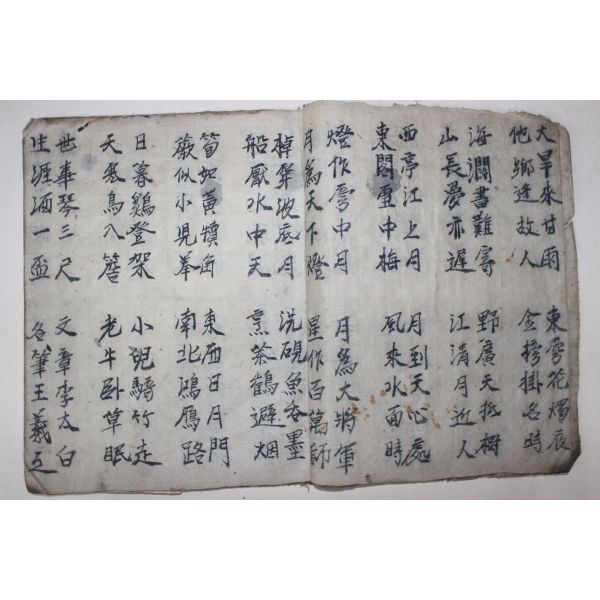 大旱來甘雨
他鄉逢故人
東房花燭夜
金榜掛名時
海濶書難寄
山長夢亦遲
野廣天低樹
江清月近人
西亭江上月
東閣雪中梅
月到天心處
風來水面時
燈作房中月
月為天下燈
月為大將軍
星作百萬師
棹穿波底月
船壓水中天
洗硯魚吞墨
烹茶鶴避烟
筍如黃犢角
蕨似小兒拳
東西日月門
南北鴻鴈路
日暮鷄登架
天寒鳥入簷
小兒騎竹走
老牛卧草眠
世事琴三尺
生涯酒一盃
文章李太白
名筆王羲之